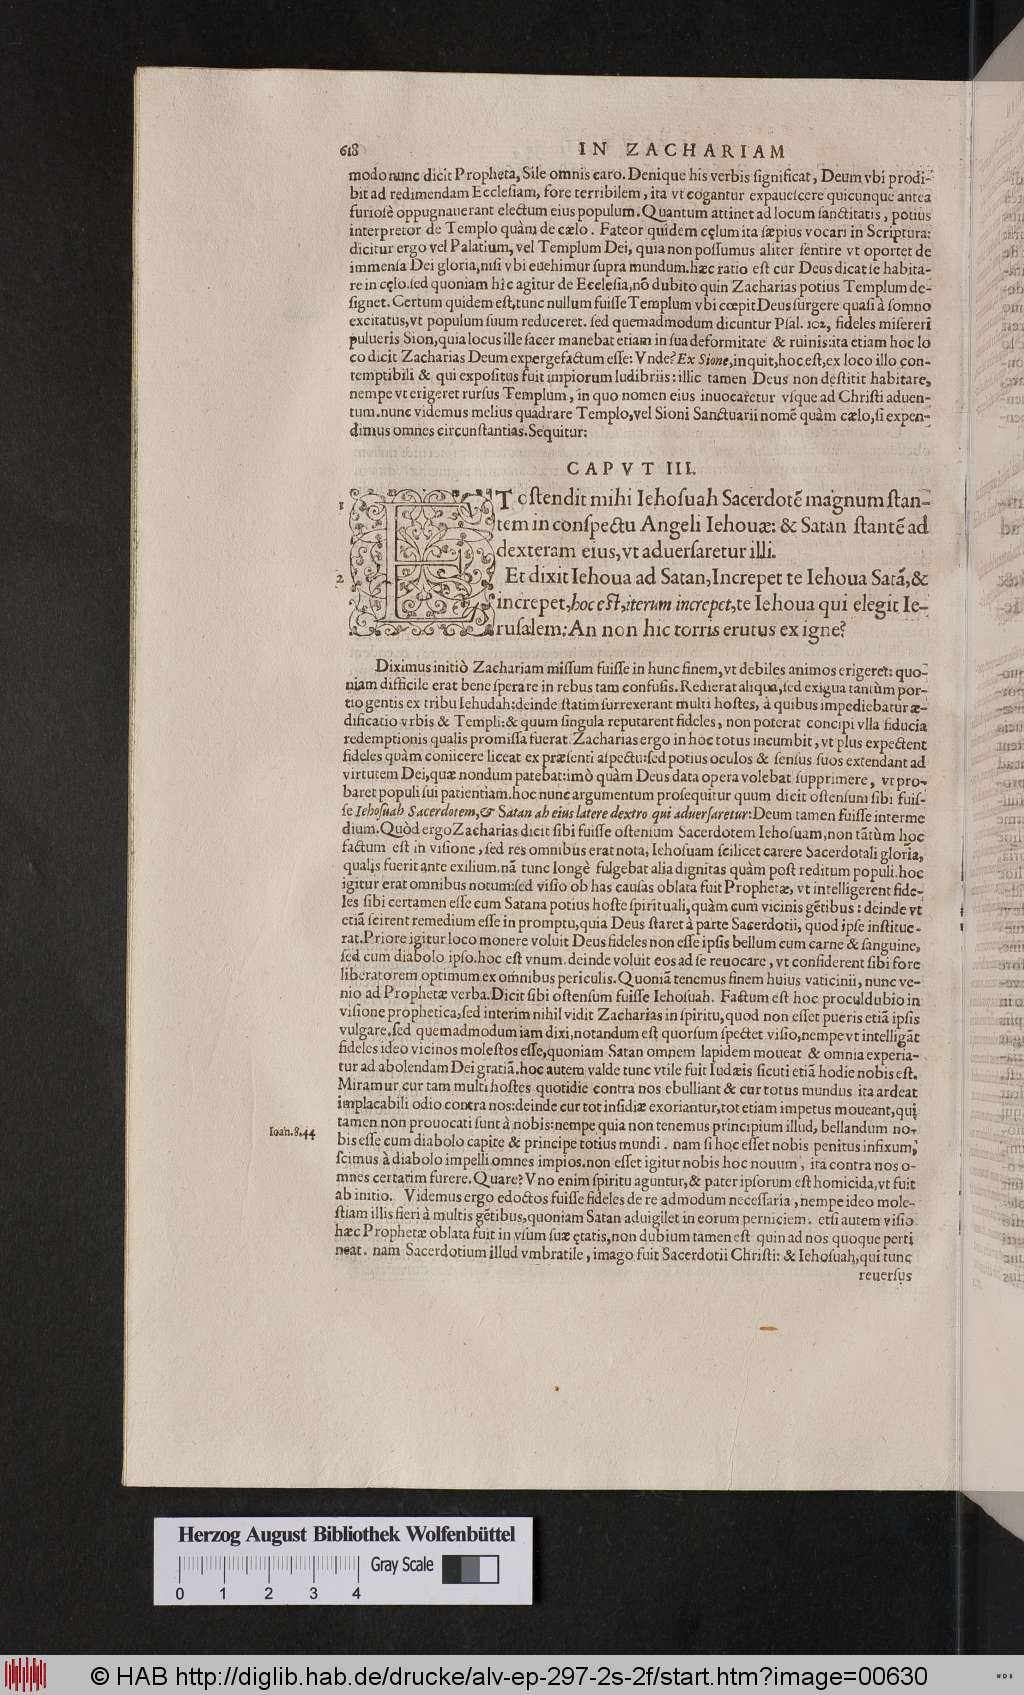 618 IN ZACHARIAM
modo nunc dicit Propheta, Sile omnis caro. Denique his verbis ſignificat, Deum vbi prodi-
bit ad redimendam Eccleſiam, fore terribilem, ita vt cogantur expaueſcere quicunque antea
furioſè oppugnauerant electum eius populum. Quantum attinet ad locum ſanctitatis, potius
interpretor de Templo quàm de cælo. Fateor quidem cęlum ita ſæpius vocari in Scriptura:
dicitur ergo vel Palatium, vel Templum Dei, quia non poſſumus aliter ſentire vt oportet de
immenſa Dei gloria, niſi vbi euehimur ſupra mundum. hæc ratio eſt cur Deus dicat ſe habita-
re in cęlo. ſed quoniam hîc agitur de Eccleſia, nō dubito quin Zacharias potius Templum de-
ſignet. Certum quidem eſt, tunc nullum fuiſſe Templum vbi cœpit Deus ſurgere quaſi à ſomno
excitatus, vt populum ſuum reduceret. ſed quemadmodum dicuntur Pſal. 102, fideles miſereri
pulueris Sion, quia locus ille ſacer manebat etiam in ſua deformitate & ruinis: ita etiam hoc lo
co dicit Zacharias Deum expergefactum eſſe: Vnde? Ex Sione, inquit, hoc eſt, ex loco illo con-
temptibili & qui expoſitus fuit impiorum ludibriis: illic tamen Deus non deſtitit habitare,
nempe vt erigeret rurſus Templum, in quo nomen eius inuocaretur vſque ad Chriſti aduen-
tum. nunc videmus melius quadrare Templo, vel Sioni Sanctuarii nomē quàm cælo, ſi expen-
dimus omnes circunſtantias. Sequitur:
CAPVT III.
1 ET oſtendit mihi Iehoſuah Sacerdotē magnum ſtan-
tem in conſpectu Angeli Iehouæ: & Satan ſtantē ad
dexteram eius, vt aduerſaretur illi.
2 Et dixit Iehoua ad Satan, Increpet te Iehoua Satā, &
increpet, hoc eſt, iterum increpet, te Iehoua qui elegit Ie-
ruſalem: An non hic torris erutus ex igne?
Diximus initiò Zachariam miſſum fuiſſe in hunc finem, vt debiles animos erigeret: quo-
niam difficile erat bene ſperare in rebus tam confuſis. Redierat aliqua, ſed exigua tantùm por-
tio gentis ex tribu Iehudah: deinde ſtatim ſurrexerant multi hoſtes, à quibus impediebatur æ-
dificatio vrbis & Templi: & quum ſingula reputarent fideles, non poterat concipi vlla fiducia
redemptionis qualis promiſſa fuerat. Zacharias ergo in hoc totus incumbit, vt plus expectent
fideles quàm coniicere liceat ex præſenti aſpectu: ſed potius oculos & ſenſus ſuos extendant ad
virtutem Dei, quæ nondum patebat: imò quàm Deus data opera volebat ſupprimere, vt pro-
baret populi ſui patientiam. hoc nunc argumentum proſequitur quum dicit oſtenſum ſibi fuiſ-
ſe Iehoſuah Sacerdotem, & Satan ab eius latere dextro qui aduerſaretur: Deum tamen fuiſſe interme
dium. Quòd ergo Zacharias dicit ſibi fuiſſe oſtenſum Sacerdotem Iehoſuam, non tātùm hoc
factum eſt in viſione, ſed res omnibus erat nota, Iehoſuam ſcilicet carere Sacerdotali gloria,
qualis fuerit ante exilium. nā tunc longè fulgebat alia dignitas quàm poſt reditum populi. hoc
igitur erat omnibus notum: ſed viſio ob has cauſas oblata fuit Prophetæ, vt intelligerent fide-
les ſibi certamen eſſe cum Satana potius hoſte ſpirituali, quàm cum vicinis gētibus: deinde vt
etiā ſcirent remedium eſſe in promptu, quia Deus ſtaret à parte Sacerdotii, quod ipſe inſtitue-
rat. Priore igitur loco monere voluit Deus fideles non eſſe ipſis bellum cum carne & ſanguine,
ſed cum diabolo ipſo. hoc eſt vnum. deinde voluit eos ad ſe reuocare, vt confiderent ſibi fore
liberatorem optimum ex omnibus periculis. Quoniā tenemus finem huius vaticinii, nunc ve-
nio ad Prophetæ verba. Dicit ſibi oſtenſum fuiſſe Iehoſuah. Factum eſt hoc proculdubio in
viſione prophetica, ſed interim nihil vidit Zacharias in ſpiritu, quod non eſſet pueris etiā ipſis
vulgare. ſed quemadmodum iam dixi, notandum eſt quorſum ſpectet viſio, nempe vt intelligāt
fideles ideo vicinos moleſtos eſſe, quoniam Satan omnem lapidem moueat & omnia experia-
tur ad abolendam Dei gratiā. hoc autem valde tunc vtile fuit Iudæis ſicuti etiā hodie nobis eſt.
Miramur cur tam multi hoſtes quotidie contra nos ebulliant & cur totus mundus ita ardeat
implacabili odio contra nos: deinde cur tot inſidiæ exoriantur, tot etiam impetus moueant, qui
tamen non prouocati ſunt à nobis: nempe quia non tenemus principium illud, bellandum no-
Ioan. 8.44 bis eſſe cum diabolo capite & principe totius mundi. nam ſi hoc eſſet nobis penitus infixum,
ſcimus à diabolo impelli omnes impios. non eſſet igitur nobis hoc nouum, ita contra nos o-
mnes certatim furere. Quare? Vno enim ſpiritu aguntur, & pater ipſorum eſt homicida, vt fuit
ab initio. Videmus ergo edoctos fuiſſe fideles de re admodum neceſſaria, nempe ideo mole-
ſtiam illis fieri à multis gētibus, quoniam Satan aduigilet in eorum perniciem. etſi autem viſio
hæc Prophetæ oblata fuit in vſum ſuæ ętatis, non dubium tamen eſt quin ad nos quoque perti
neat. nam Sacerdotium illud vmbratile, imago fuit Sacerdotii Chriſti: & Iehoſuah, qui tunc
reuerſus
Herzog August Bibliothek Wolfenbüttel
Gray Scale
0 1 2 3 4
© HAB http://diglib.hab.de/drucke/alv-ep-297-2s-2f/start.htm?image=00630